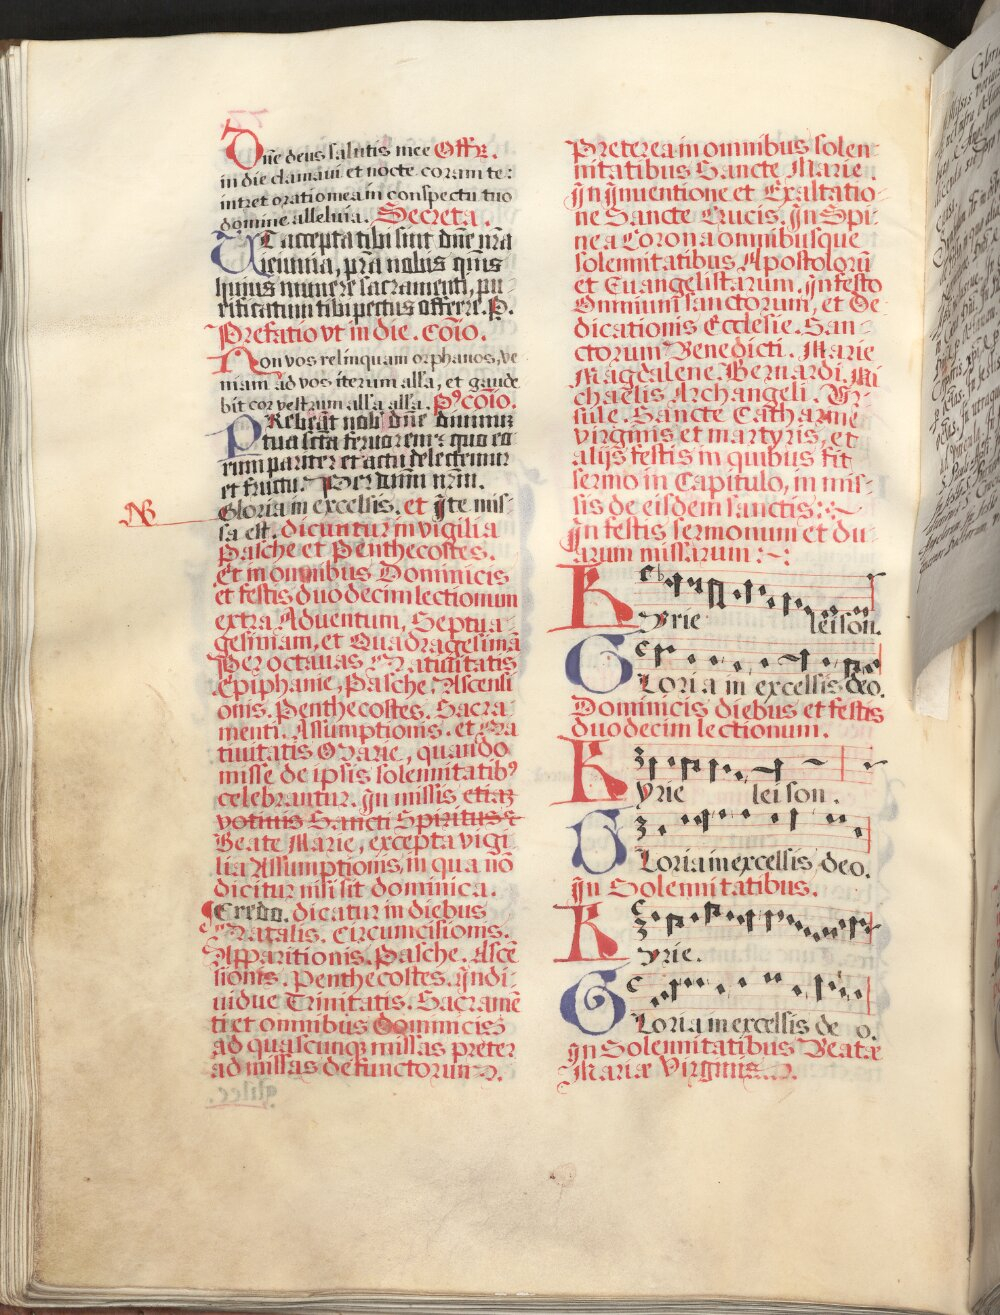 Dñe deus salutis mee Offꝝ.
in die clamaui et nocte coram te:
intret oratio mea in conspectu tuo
domine alleluia. Secreta.
UT accepta tibi sint dñe nr̃a
ieiunia, pr̃a nobis qm̃s
huius munere sacramenti, pu-
rificatum tibi pectus offerre. P.
Prefatio vt in die. Cõio.
Non vos relinquam orphanos, ve
niam ad vos iterum alľa, et gaude
bit cor vestrum alľa alľa. Pꝰ cõio.
PRebeãt nob̃ dñe diuinũ
tua sct̃a feruorem: quo eo
rum pariter et actu delectemur
et fructu. Per dñm nr̃m.
NB
Gloria in excelsis. et Jte mis-
sa est. dicuntur in vigilia
Pasche et Penthecostes.
Et in omnibus Dominicis
et festis duodecim lectionum
extra Aduentum, Septua-
gesimam, et Quadragesimã
Per octauas Natiuitatis
Epiphanie, Pasche. Ascensi
onis. Penthecostes. Sacra-
menti. Assumptionis. et Na
tiuitatis Marie, quando
misse de ipsis solennitatibꝰ
celebrantur. Jn missis etiaꝫ
votiuis Sancti Spiritus &
Beate Marie, excepta vigi
lia Assumptionis, in qua nõ
dicitur nisi sit dominica.
Credo. dicatur in diebus
Natalis. Circumcisionis.
Apparitionis. Pasche. Ascẽ
sionis. Penthecostes. Jndi-
uidue Trinitatis. Sacramẽ
ti et omnibus dominicis
ad quascunqꝫ missas preter
ad missas defunctorum.
Preterea in omnibus solen
nitatibus Sancte Marie.
Jn Jnuentione et Exaltatio-
ne Sancte Crucis. Jn Spi-
nea Corona omnibusque
solennitatibus Apostolorũ
et Euangelistarum. Jn festo
Omnium sanctorum, et De
dicationis Ecclesie. San-
ctorum Benedicti. Marie
Magdalene Bernardi. Mi
chaelis Archangeli. Vr-
sule. Sancte Catharine
virginis et martyris, et
alijs festis in quibus fit
sermo in Capitulo, in mis-
sis de eisdem sanctis:
Jn festis sermonum et du
arum missarum :~:
Kyrie leison.
Gloria in excelsis deo.
Dominicis diebus et festis
duodecim lectionum.
Kyrie leison.
Gloria in excelsis deo.
Jn Solennitatibus.
Kyrie.
Gloria in excelsis deo.
Jn Solennitatibus Beatæ
Mariæ Virginis.